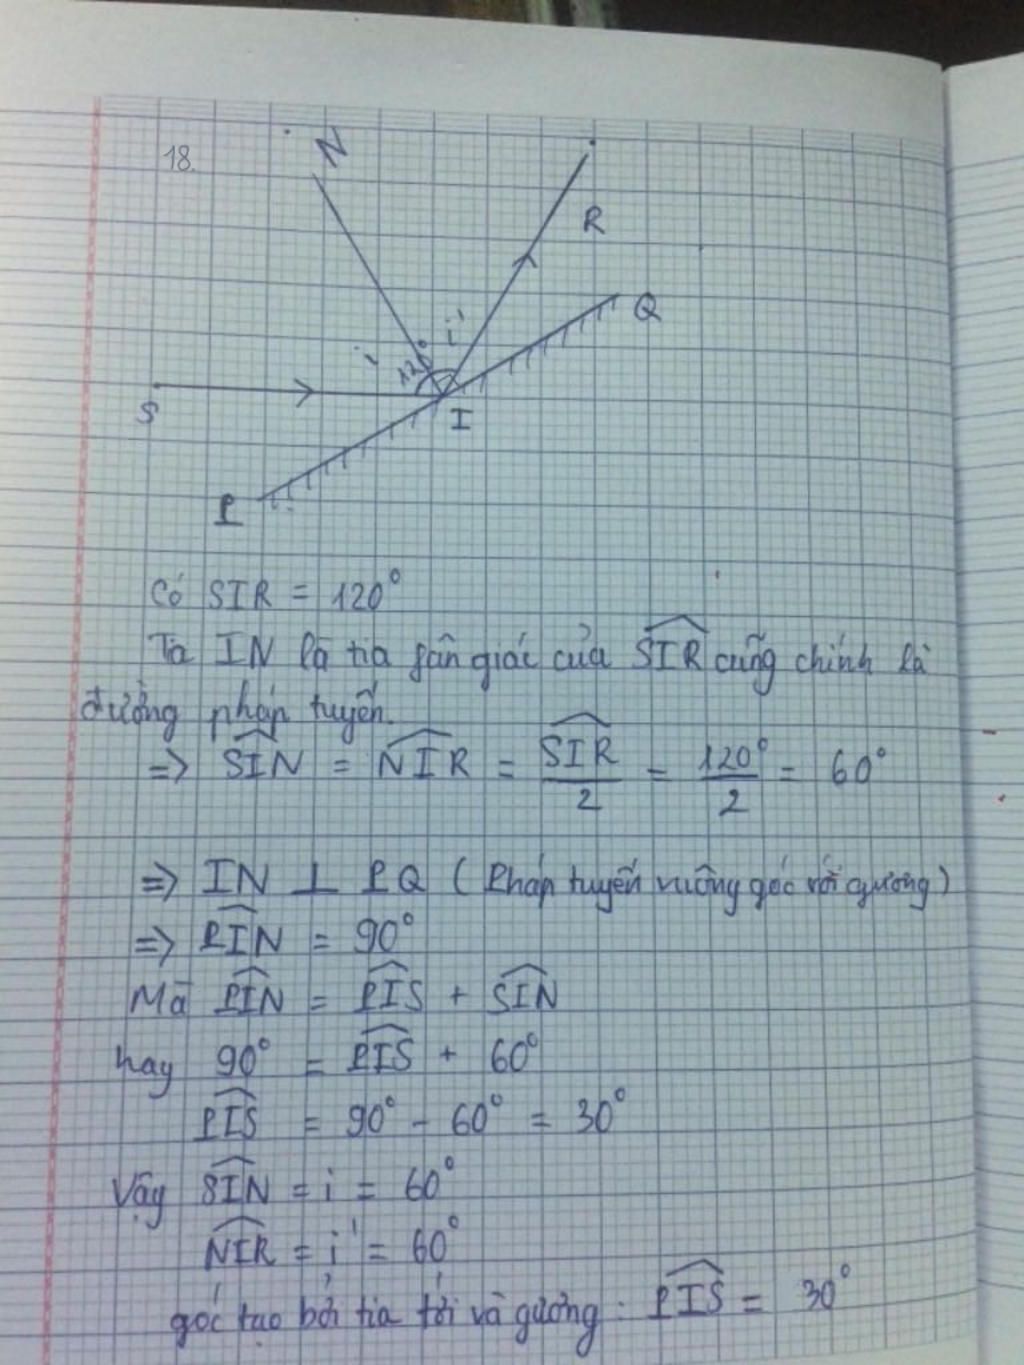 18.
N
R
Q
i'
i
120°
S
I
P
Có SIR = 120°
Ta IN là tia fân giác của SIR cũng chính là
đường pháp tuyến.
=> SIN = NIR = SIR/2 = 120°/2 = 60°
=> IN ⊥ PQ (Pháp tuyến vuông góc với gương)
=> PIN = 90°
Mà PIN = PIS + SIN
hay 90° = PIS + 60°
PIS = 90° - 60° = 30°
Vậy SIN = i = 60°
NIR = i' = 60°
góc tạo bởi tia tới và gương: PIS = 30°